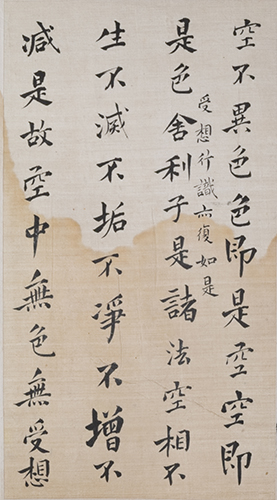 空不異色色即是空空即
是色舍利子是諸法空相不
受想行識亦復如是
生不滅不垢不淨不增不
減是故空中無色無受想